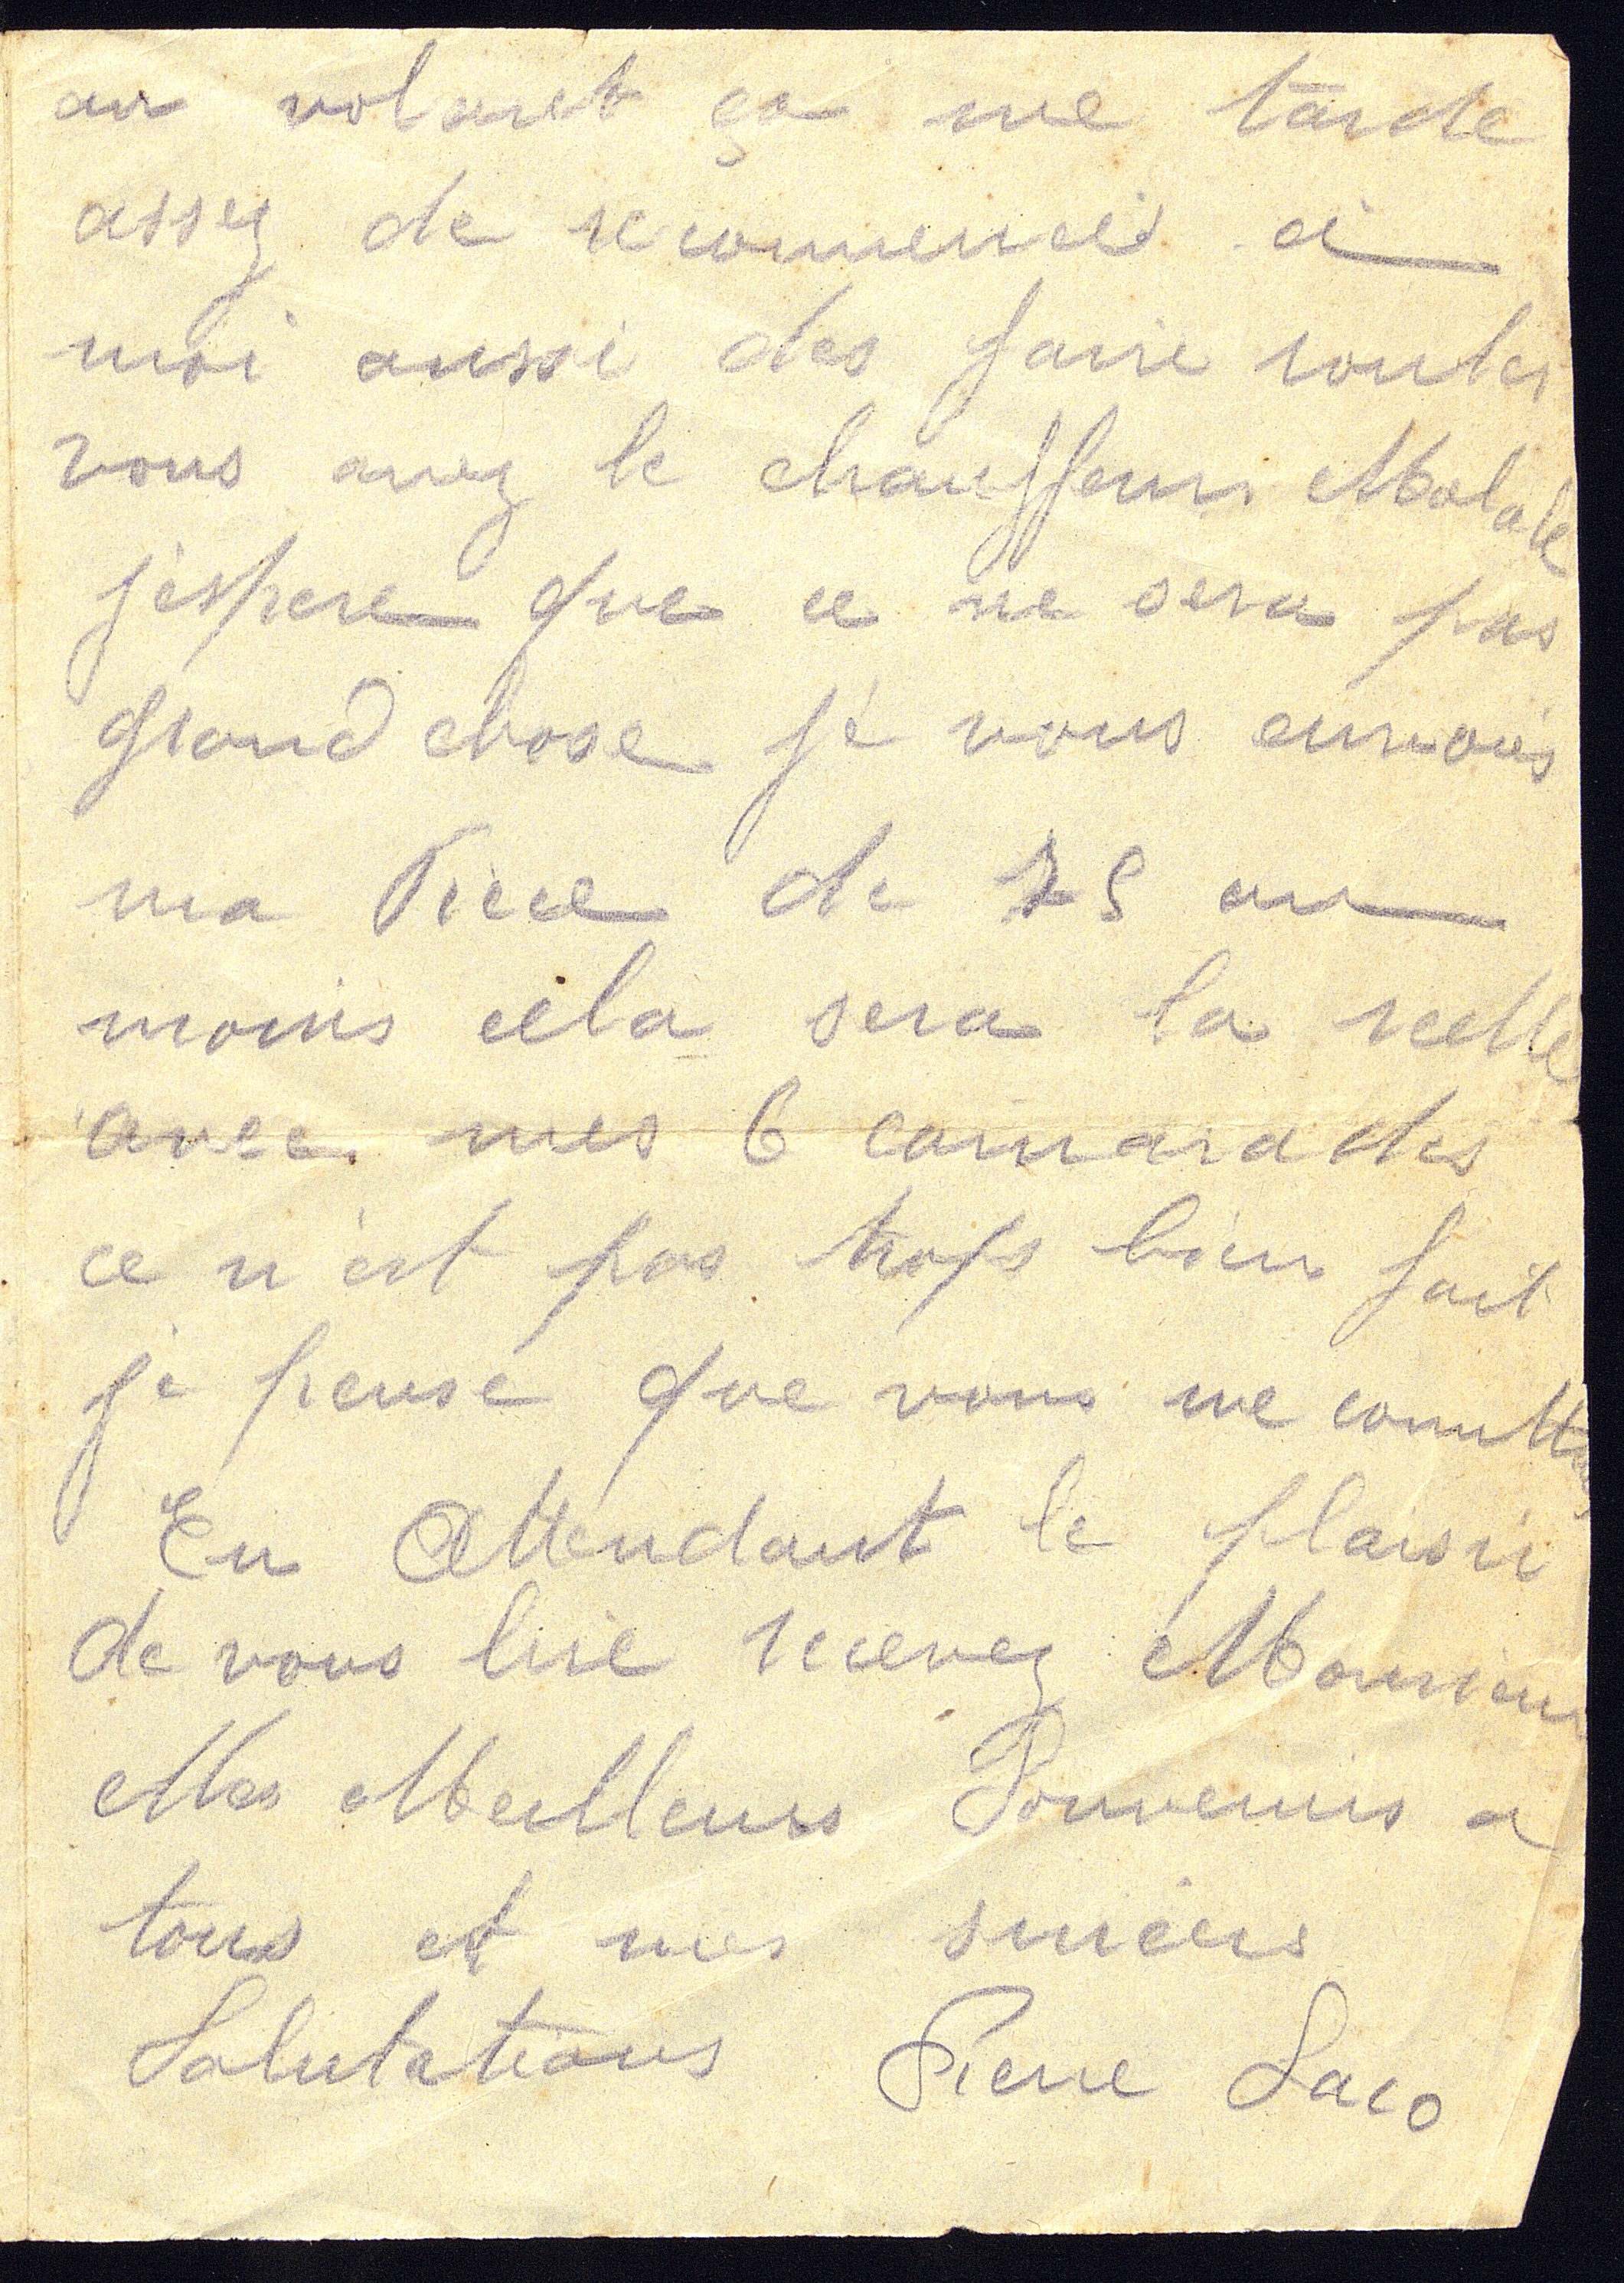 au volant ça me tarde
assez de recommencé a
moi aussi des faire rouler
vous avez le chauffeur Malade
j'espere que ce ne sera pas
grand chose je vous envois
ma Piece de 75 au
moins cela sera la reelle
avec mes 6 camarades
ce n'est pas trops bien fait
je pense que vous me
En Attendant le plaisir
de vous lire recevez Monsieur
Mes Meilleurs Souvenirs a
tous et mes sincers
Salutations Pierre Saco